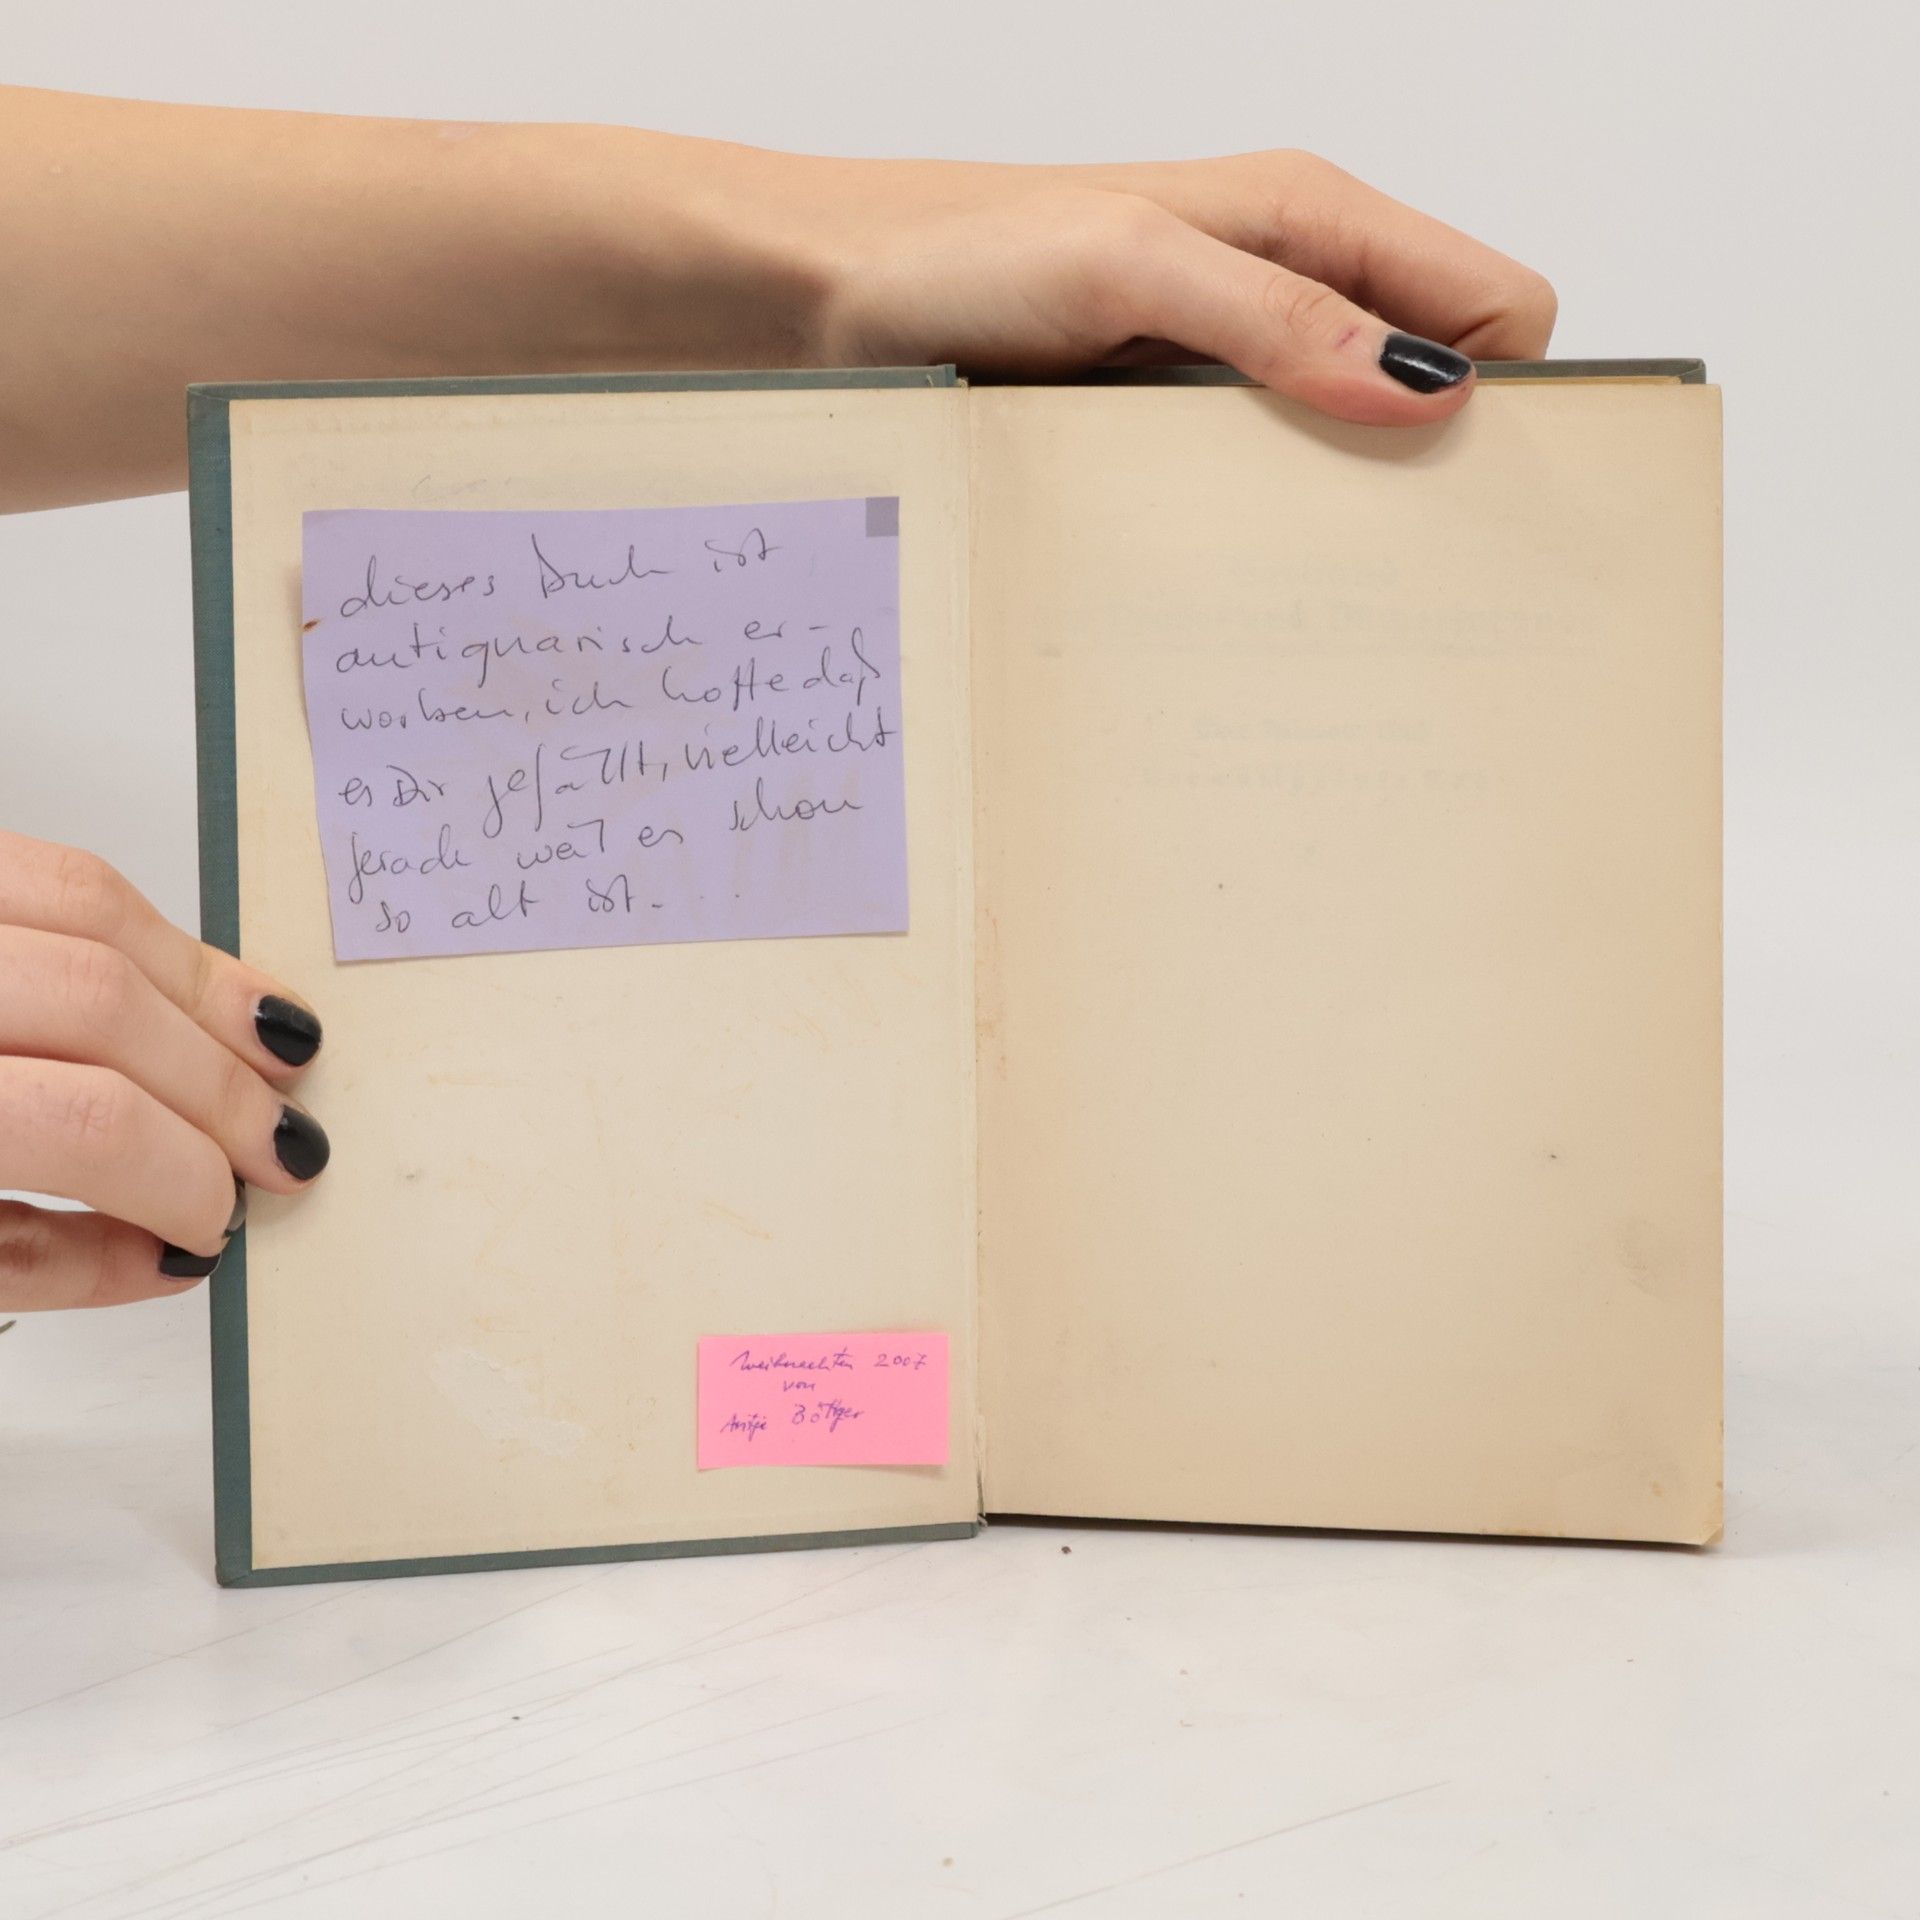 dieses Buch ist
antiquarisch er-
worben, ich hoffe daß
es Dir gefällt, vielleicht
gerade weil es schon
so alt ist. . .
Weihnachten 2007
von
Antje Böttger